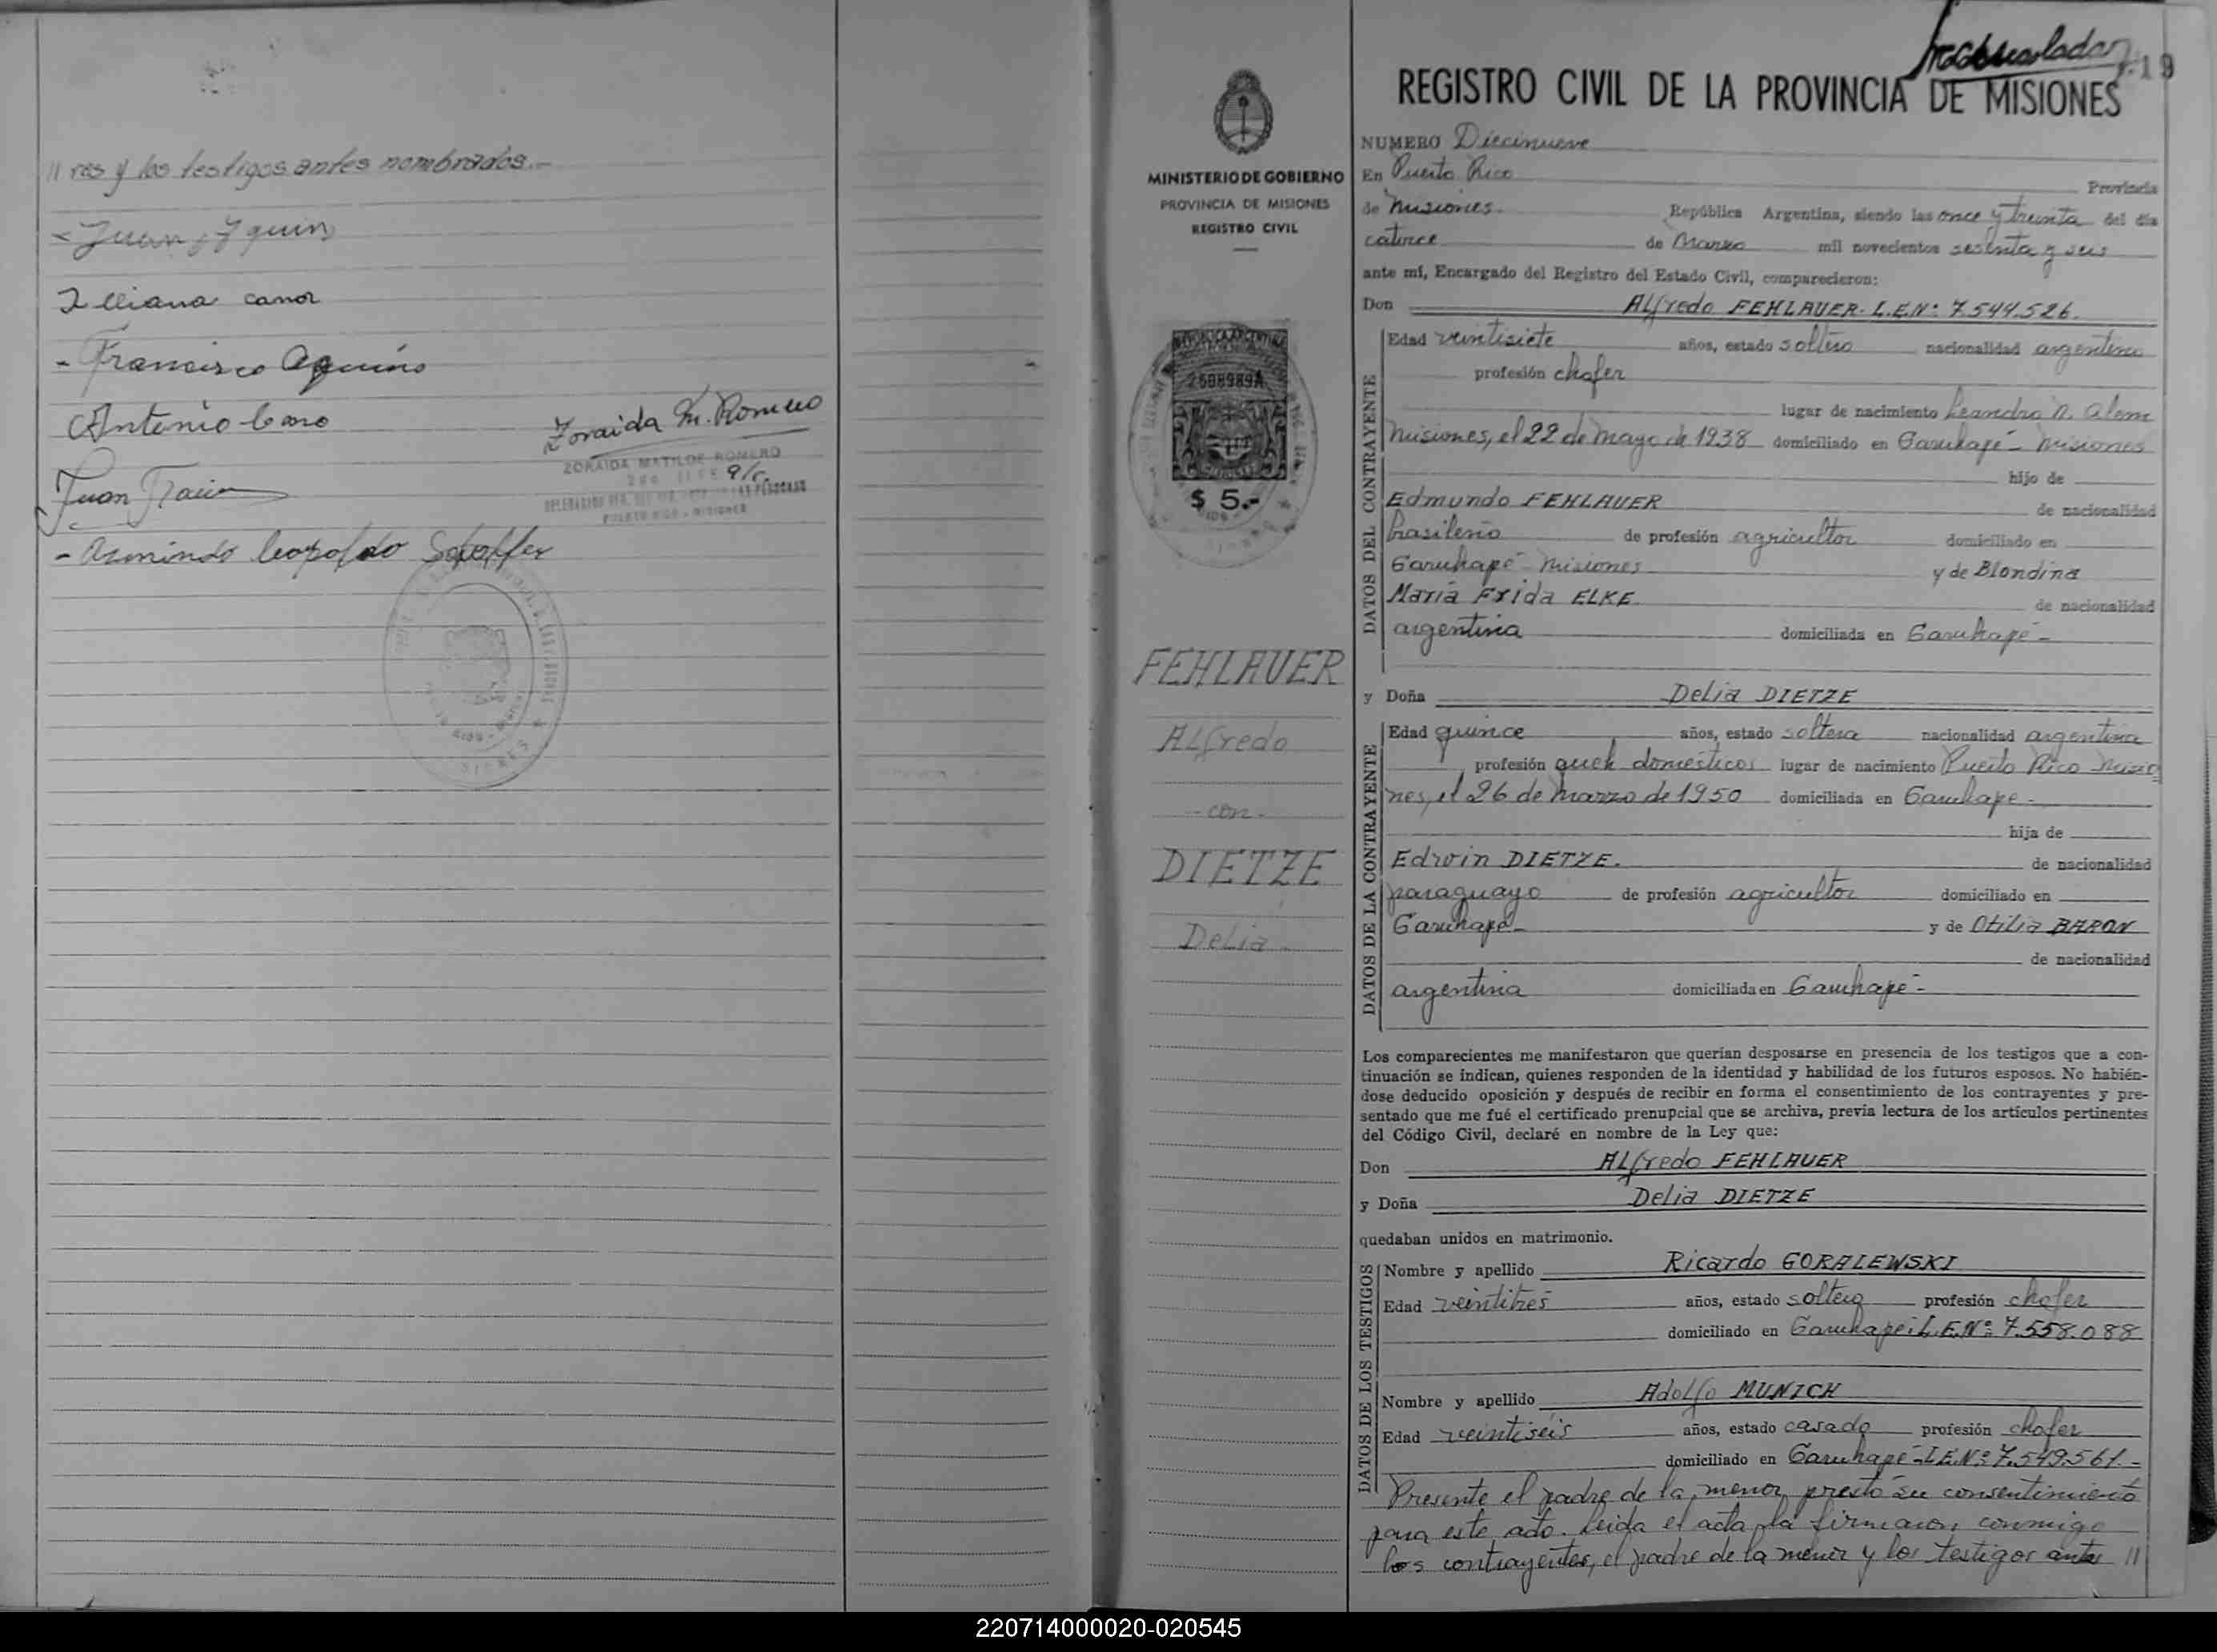 // res y los testigos antes nombrados.-
Juan Aquino
Illiana cano
- Francisco Aquino
Antonio Cano
Zoraida M. Romero
ZORAIDA MATILDE ROMERO
PUERTO RICO - MISIONES
Juan
- Armindo Leopoldo Scheffer
19
REGISTRO CIVIL DE LA PROVINCIA DE MISIONES
MINISTERIO DE GOBIERNO
PROVINCIA DE MISIONES
REGISTRO CIVIL
REPUBLICA ARGENTINA
2508989A
$ 5.-
FEHLAUER
Alfredo
- con -
DIETZE
Delia -
NUMERO Diecinueve
En Puerto Rico Provincia
de Misiones. República Argentina, siendo las once y treinta del día
catorce de Marzo mil novecientos sesenta y seis
ante mí, Encargado del Registro del Estado Civil, comparecieron:
Don Alfredo FEHLAUER. L.E.Nº: 7.544.526.
DATOS DEL CONTRAYENTE
Edad veintisiete años, estado soltero nacionalidad argentino
profesión chofer
lugar de nacimiento Leandro N. Alem
Misiones, el 22 de Mayo de 1938 domiciliado en Garuhapé - Misiones
hijo de
Edmundo FEHLAUER de nacionalidad
brasileño de profesión agricultor domiciliado en
Garuhapé - Misiones y de Blondina
María Frida ELKE de nacionalidad
argentina domiciliada en Garuhapé -
y Doña Delia DIETZE
DATOS DE LA CONTRAYENTE
Edad quince años, estado soltera nacionalidad argentina
profesión queh. domésticos lugar de nacimiento Puerto Rico Misio=
nes, el 26 de Marzo de 1950 domiciliada en Garuhapé -
hija de
Edwin DIETZE. de nacionalidad
paraguayo de profesión agricultor domiciliado en
Garuhapé - y de Otilia BARON
de nacionalidad
argentina domiciliada en Garuhapé -
Los comparecientes me manifestaron que querían desposarse en presencia de los testigos que a con-
tinuación se indican, quienes responden de la identidad y habilidad de los futuros esposos. No habién-
dose deducido oposición y después de recibir en forma el consentimiento de los contrayentes y pre-
sentado que me fué el certificado prenupcial que se archiva, previa lectura de los artículos pertinentes
del Código Civil, declaré en nombre de la Ley que:
Don Alfredo FEHLAUER
y Doña Delia DIETZE
quedaban unidos en matrimonio.
DATOS DE LOS TESTIGOS
Nombre y apellido Ricardo GORALEWSKI
Edad veintitrés años, estado soltero profesión chofer
domiciliado en Garuhapé: L.E.Nº: 7.558.088
Nombre y apellido Adolfo MUNICH
Edad veintiséis años, estado casado profesión chofer
domiciliado en Garuhapé - L.E.Nº: 7.549.561.-
Presente el padre de la menor prestó su consentimiento
para este acto. Leída el acta la firmaron conmigo
los contrayentes, el padre de la menor y los testigos antes //
220714000020-020545